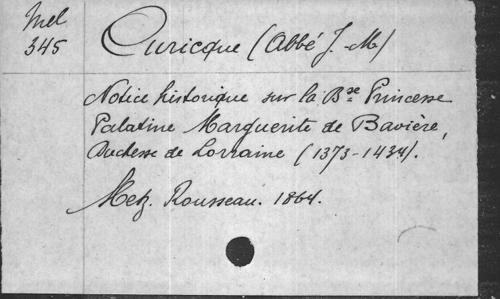 Mel
345
Curicque (Abbé J.-M)
Notice historique sur la Bse Princesse
Palatine Marguerite de Bavière,
Duchesse de Lorraine (1373-1434).
Metz. Rousseau. 1864.